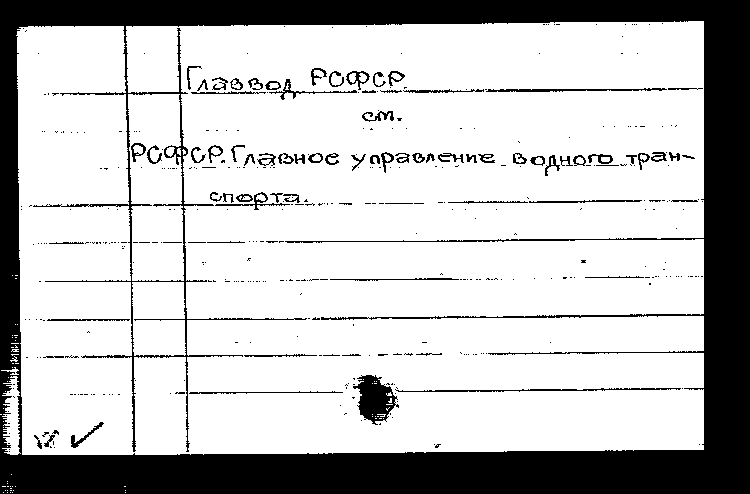 Главвод РСФСР
см.
РСФСР. Главное управление водного тран-
спорта.